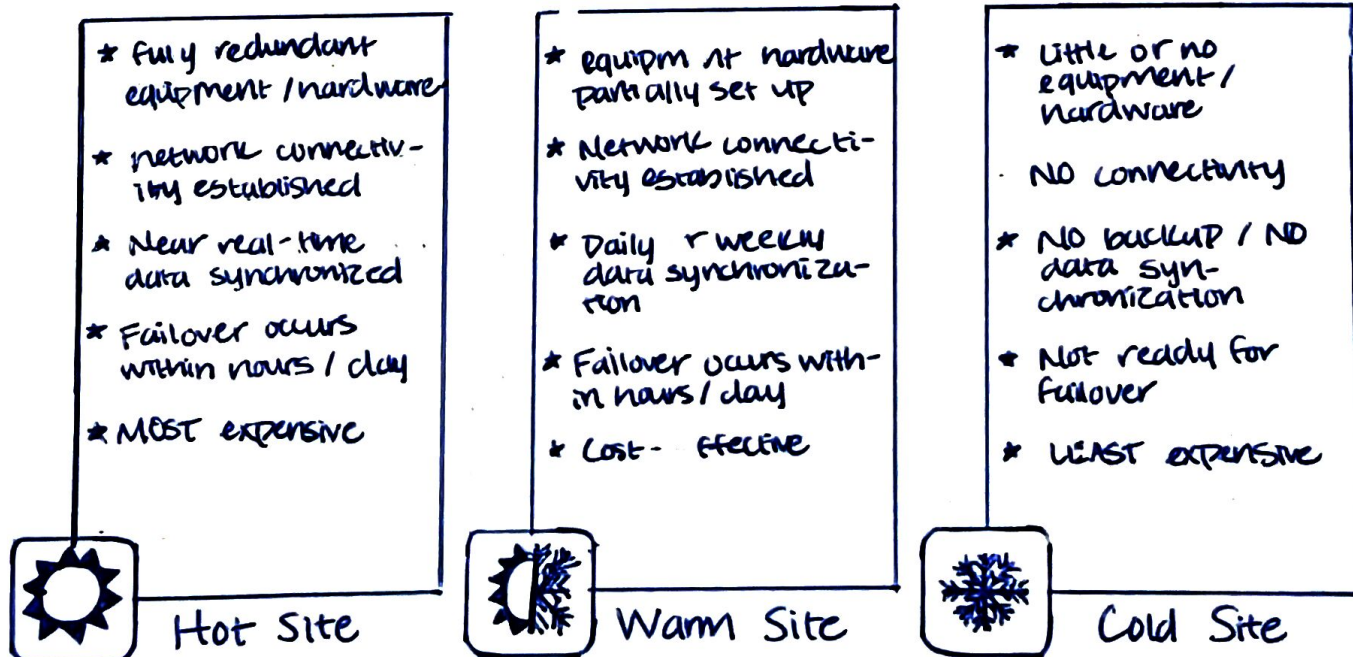 * Fully redundant
equipment / hardware
* network connectiv-
ity established
* Near real-time
data synchronized
* Failover occurs
within hours / day
* MOST expensive
Hot Site
* equipm nt hardware
partially set up
* Network connecti-
vity established
* Daily r weekly
data synchroniza-
tion
* Failover occurs with-
in hours / day
* Cost- ffective
Warm Site
* Little or no
equipment /
hardware
NO connectivity
* NO backup / NO
data syn-
chronization
* Not ready for
failover
* LEAST expensive
Cold Site